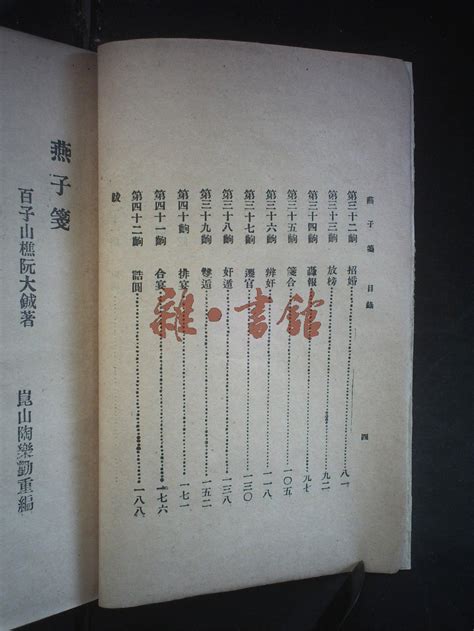 燕子箋 目錄 四
第三十二齣 招婚 八一
第三十三齣 放榜 九二
第三十四齣 轟報 九七
第三十五齣 箋合 一〇五
第三十六齣 辨奸 一一八
第三十七齣 遷官 一三〇
第三十八齣 奸遁 一三八
第三十九齣 雙逅 一五二
第四十齣 排宴 一七一
第四十一齣 合宴 一七六
第四十二齣 誥圓 一八八
跋
雜·書館
燕子箋
百子山樵阮大鋮著
崑山陶樂勤重編